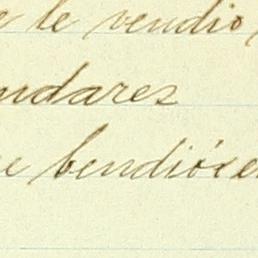 e le vendio
ndares
e bendióse